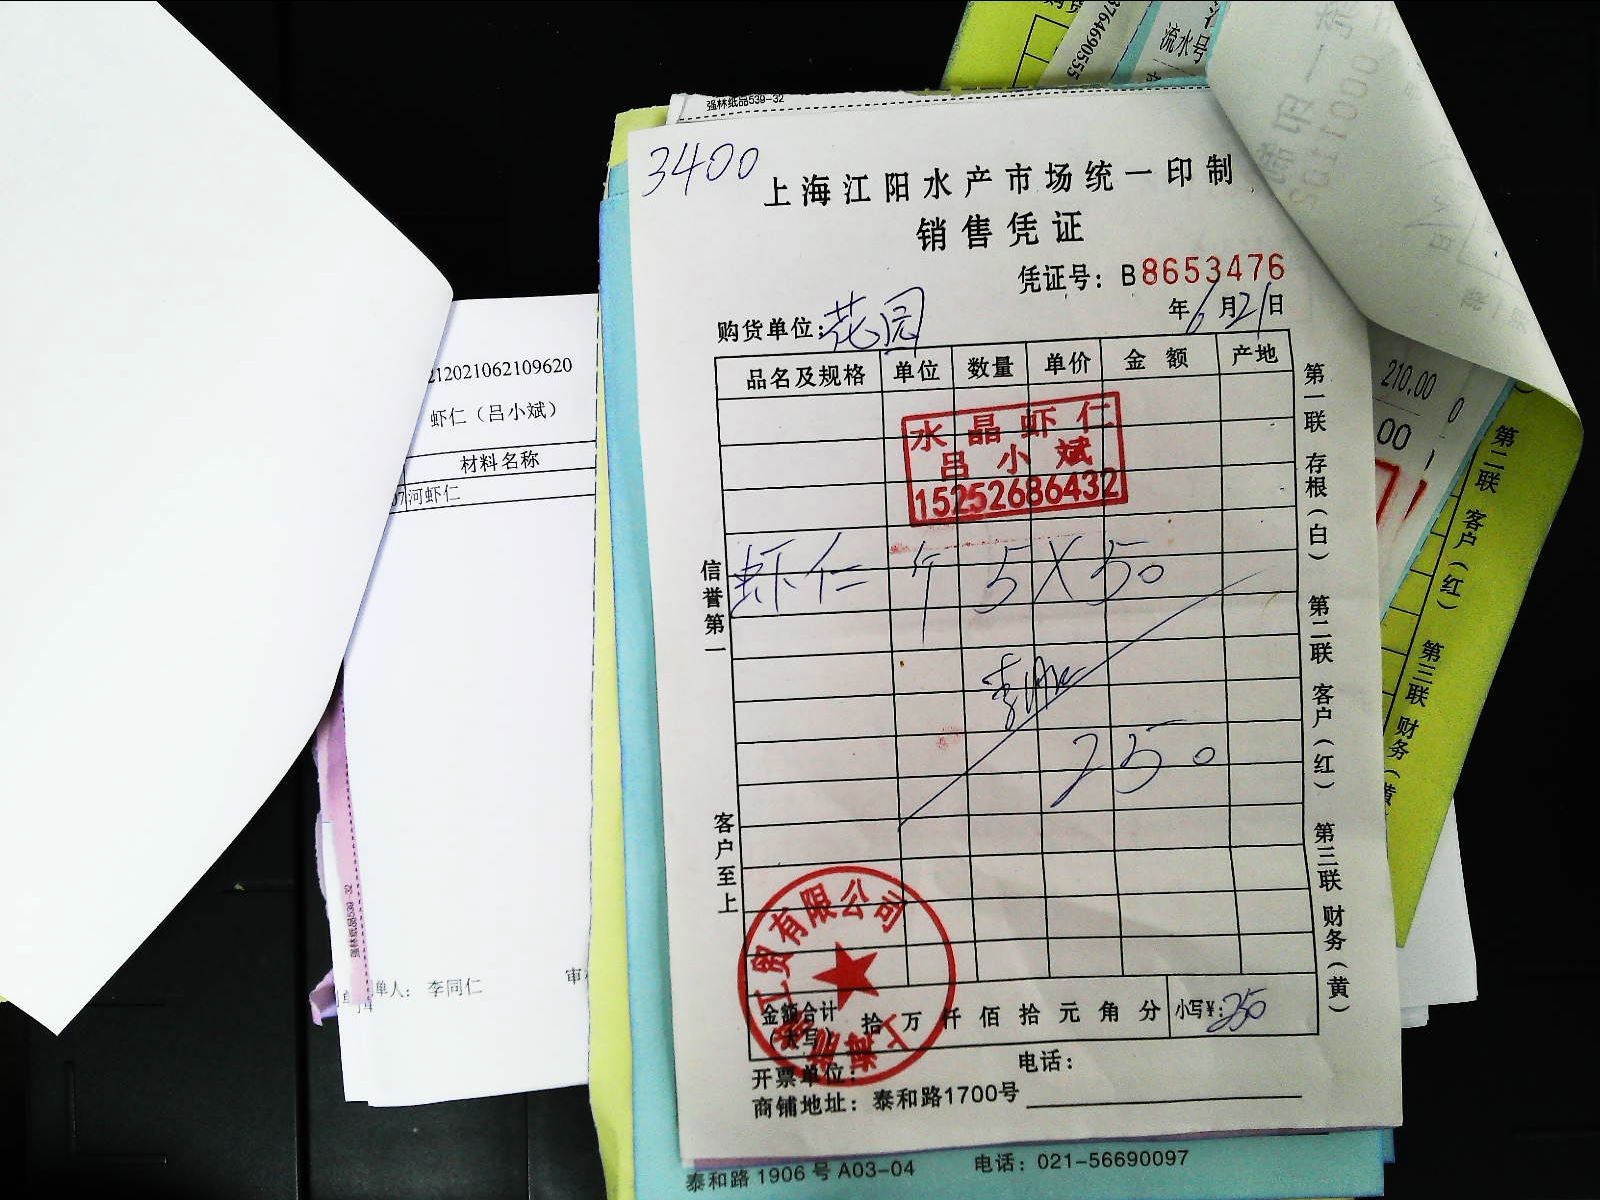 强林纸品539-32
3764690555
流水号
3400
上海江阳水产市场统一印制
销售凭证
凭证号：B8653476
购货单位：花园
年6月21日
品名及规格 单位 数量 单价 金额 产地
水晶虾仁
吕小斌
15252686432
虾仁 5X50
250
信誉第一
客户至上
第一联 存根（白） 第二联 客户（红） 第三联 财务（黄）
贸有限公司
金额合计（大写） 拾 万 仟 佰 拾 元 角 分 小写¥：250
开票单位：
电话：
商铺地址：泰和路1700号
泰和路1906号A03-04 电话：021-56690097
212021062109620
虾仁（吕小斌）
材料名称
河虾仁
单人： 李同仁
强林纸品539-32
210.00
第二联 客户（红） 第三联 财务（黄